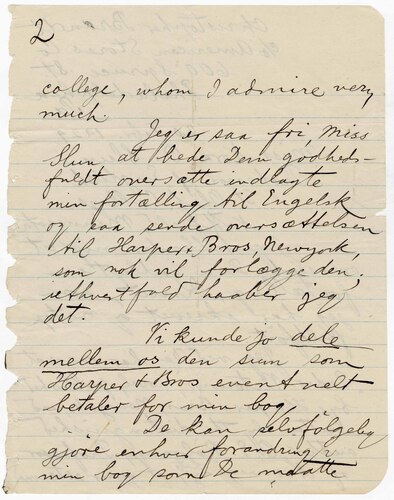 2
college, whom I admire very
much.
Jeg er saa fri, Miss
at bede Dem godheds-
fuldt oversætte indlagte
min fortælling til Engelsk
og saa sende oversættelsen
til Harper & Bros. Newyork,
som nok vil forlægge den,
iethvertfald haaber jeg
det.
Vi kunde jo dele
mellem os den sum som
Harper & Bros eventuelt
betaler for min bog.
De kan selvfölgelig
gjöre enhver forandring i
min bog som De maatte